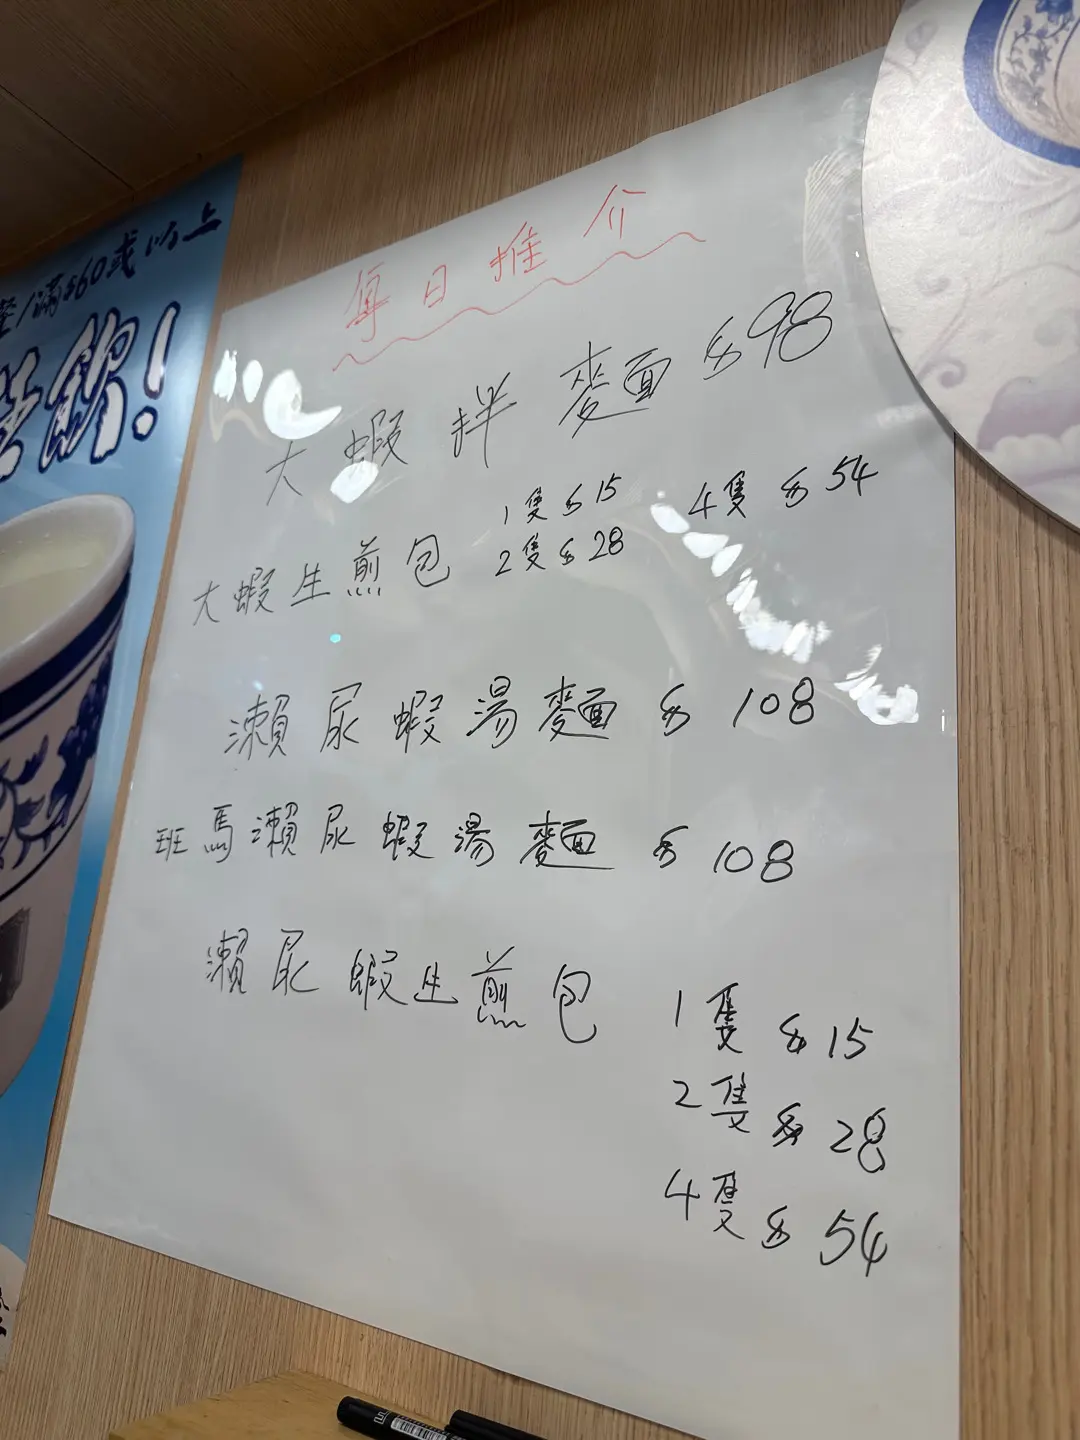 每日推介
大蝦拌麵 $98
大蝦生煎包 1隻 $15 4隻 $54
2隻 $28
瀨尿蝦湯麵 $108
班馬瀨尿蝦湯麵 $108
瀨尿蝦生煎包 1隻 $15
2隻 $28
4隻 $54
滿$60或以上
飲!